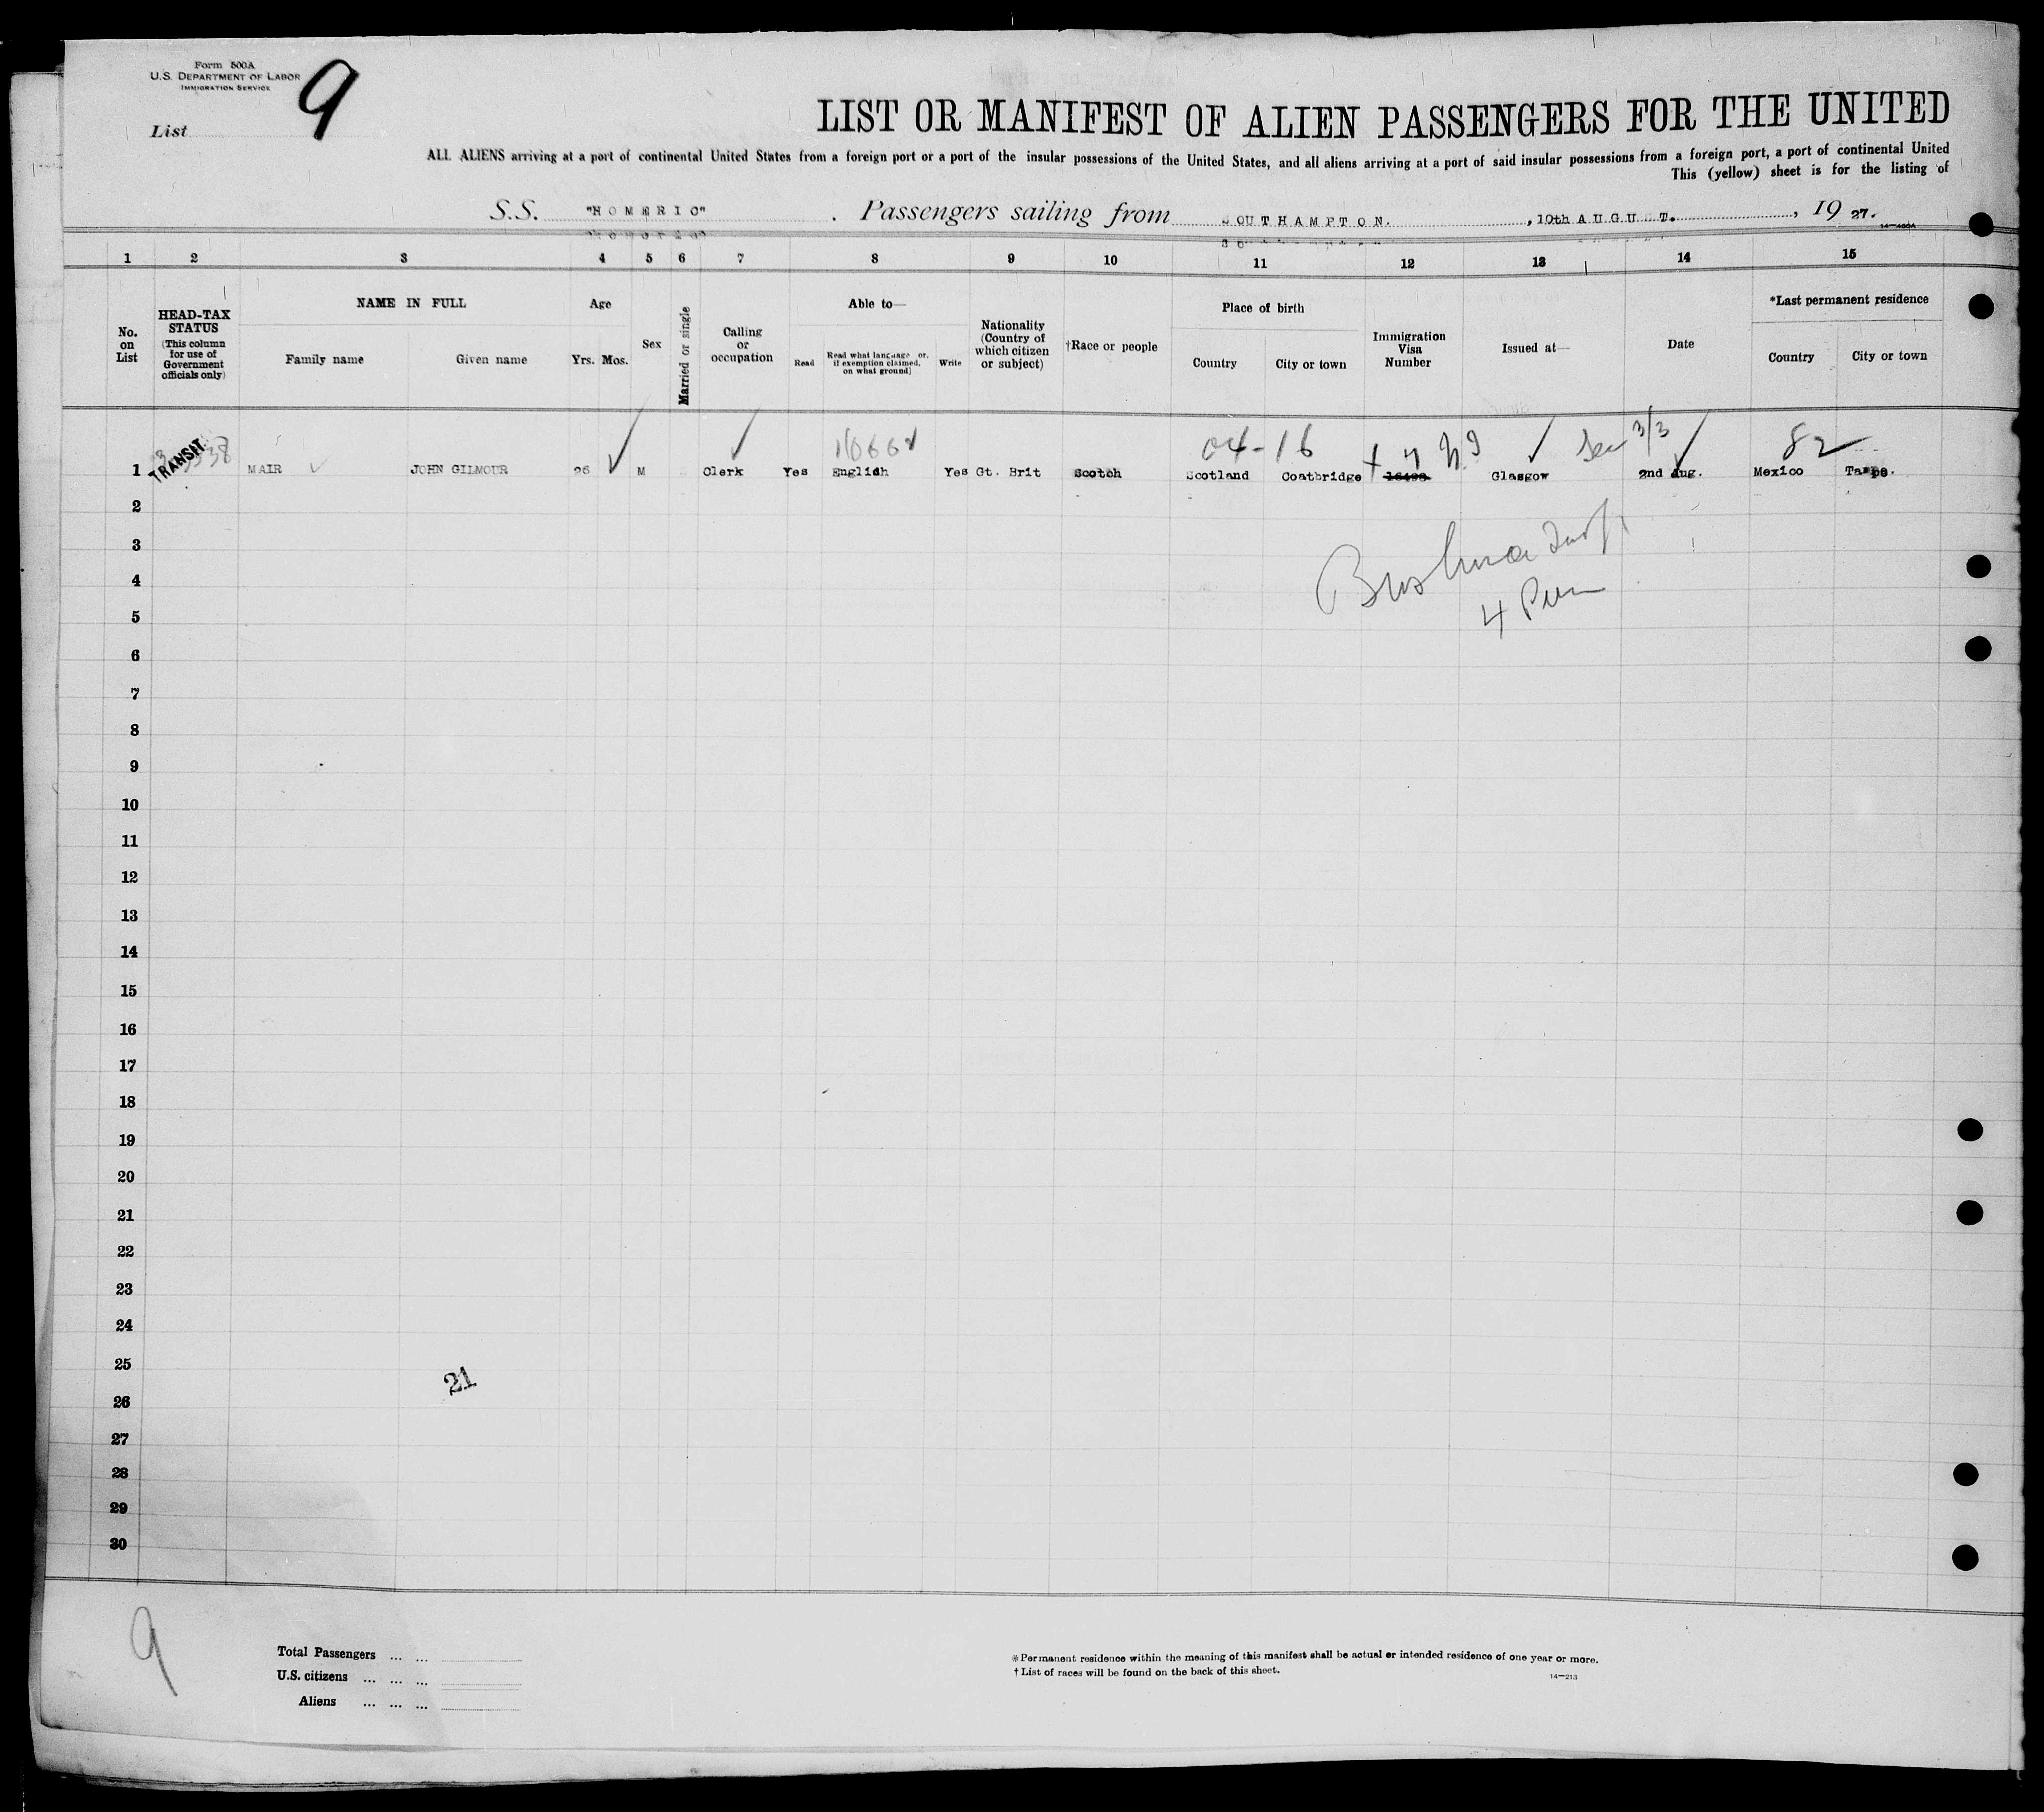 Form 500A
U.S. DEPARTMENT OF LABOR
IMMIGRATION SERVICE
List 9
LIST OR MANIFEST OF ALIEN PASSENGERS FOR THE UNITED
ALL ALIENS arriving at a port of continental United States from a foreign port or a port of the insular possessions of the United States, and all aliens arriving at a port of said insular possessions from a foreign port, a port of continental United
This (yellow) sheet is for the listing of
S.S. "HOMERIC" . Passengers sailing from SOUTHAMPTON. , 10th AUGUST. , 19 27.
14-480A
1 2 3 4 5 6 7 8 9 10 11 12 13 14 15
No. on List
HEAD-TAX STATUS (This column for use of Government officials only)
NAME IN FULL
Family name Given name
Age
Yrs. Mos.
Sex
Married or single
Calling or occupation
Able to—
Read Read what language or, if exemption claimed, on what ground] Write
Nationality (Country of which citizen or subject)
†Race or people
Place of birth
Country City or town
Immigration Visa Number
Issued at—
Date
*Last permanent residence
Country City or town
04-16 3/3 82
1 TRANSIT MAIR JOHN GILMOUR 26 M Clerk Yes English Yes Gt. Brit Scotch Scotland Coatbridge Glasgow 2nd Aug. Mexico
2
3
4
5
6
7
8
9
10
11
12
13
14
15
16
17
18
19
20
21
22
23
24
25
21
26
27
28
29
30
9
Total Passengers ... ...
U.S. citizens ... ... ...
Aliens ... ... ...
*Permanent residence within the meaning of this manifest shall be actual or intended residence of one year or more.
†List of races will be found on the back of this sheet.
14—213